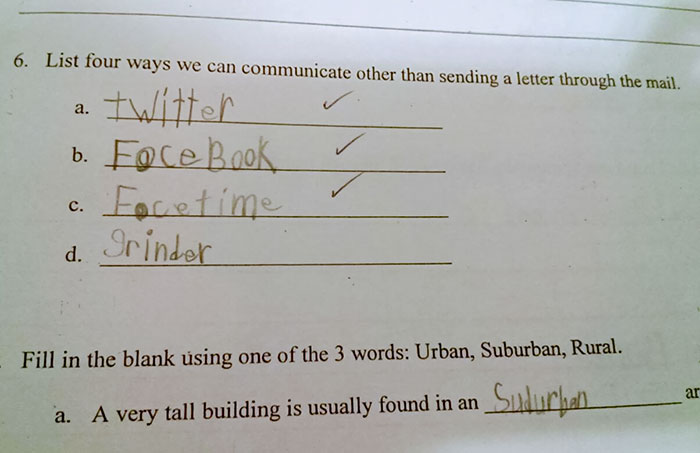 6. List four ways we can communicate other than sending a letter through the mail.
a. twitter
b. FaceBook
c. Facetime
d. grinder
Fill in the blank using one of the 3 words: Urban, Suburban, Rural.
a. A very tall building is usually found in an Sudurban